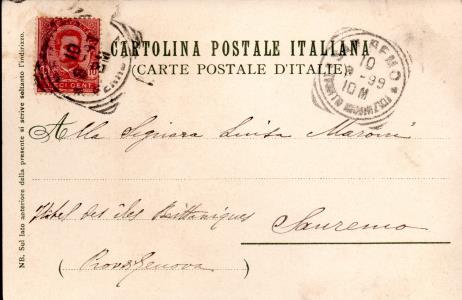 CARTOLINA POSTALE ITALIANA
(CARTE POSTALE D'ITALIE)
10
10 M
Alla Signora Luisa Maroni
Hôtel des îles Brittaniques
Sanremo
(Prov Genova)
NB. Sul lato anteriore della presente si scrive soltanto l'indirizzo.